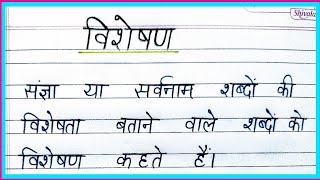 Shivala
विशेषण
संज्ञा या सर्वनाम शब्दों की
विशेषता बताने वाले शब्दों को
विशेषण कहते हैं।